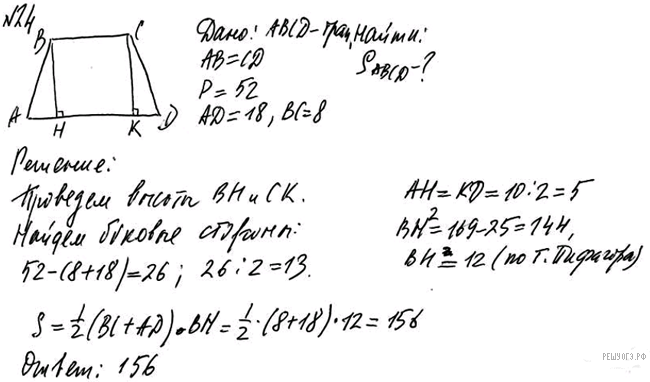 №24
B C
A H K D
Дано: ABCD-трап, Найти:
AB=CD S ABCD-?
P=52
AD=18, BC=8
Решение:
Проведем высоты BH и CK.
Найдем боковые стороны:
52-(8+18)=26; 26:2=13.
AH=KD=10:2=5
BH²=169-25=144,
BH=12 (по т. Пифагора)
S=1/2(BC+AD)·BH=1/2·(8+18)·12=156
Ответ: 156
РЕШУОГЭ.РФ